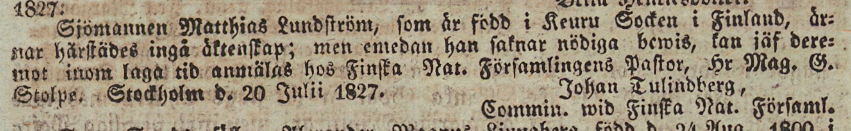 1827.
Sjömannen Matthias Lundström, som är född i Keuru Socken i Finland, är-
nar härstädes ingå äktenskap; men emedan han saknar nödiga bewis, kan jäf dere-
mot inom laga tid anmälas hos Finska Nat. Församlingens Pastor, Hr Mag. G.
Stolpe. Stockholm d. 20 Julii 1827.
Johan Tulindberg,
Commin. wid Finska Nat. Församl.
född d. 24 Aug. 1800 i